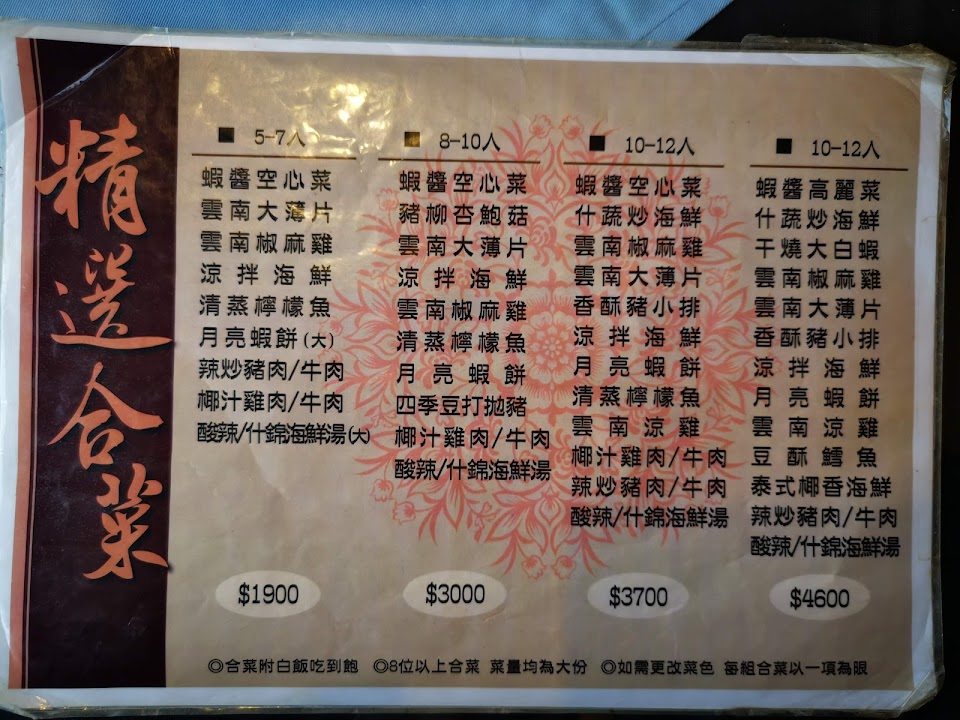 精選合菜
■ 5-7人
蝦醬空心菜
雲南大薄片
雲南椒麻雞
涼拌海鮮
清蒸檸檬魚
月亮蝦餅(大)
辣炒豬肉/牛肉
椰汁雞肉/牛肉
酸辣/什錦海鮮湯(大)
$1900
■ 8-10人
蝦醬空心菜
豬柳杏鮑菇
雲南大薄片
涼拌海鮮
雲南椒麻雞
清蒸檸檬魚
月亮蝦餅
四季豆打拋豬
椰汁雞肉/牛肉
酸辣/什錦海鮮湯
$3000
■ 10-12人
蝦醬空心菜
什蔬炒海鮮
雲南椒麻雞
雲南大薄片
香酥豬小排
涼拌海鮮
月亮蝦餅
清蒸檸檬魚
雲南涼雞
椰汁雞肉/牛肉
辣炒豬肉/牛肉
酸辣/什錦海鮮湯
$3700
■ 10-12人
蝦醬高麗菜
什蔬炒海鮮
干燒大白蝦
雲南椒麻雞
雲南大薄片
香酥豬小排
涼拌海鮮
月亮蝦餅
雲南涼雞
豆酥鱈魚
泰式椰香海鮮
辣炒豬肉/牛肉
酸辣/什錦海鮮湯
$4600
◎合菜附白飯吃到飽 ◎8位以上合菜 菜量均為大份 ◎如需更改菜色 每組合菜以一項為限